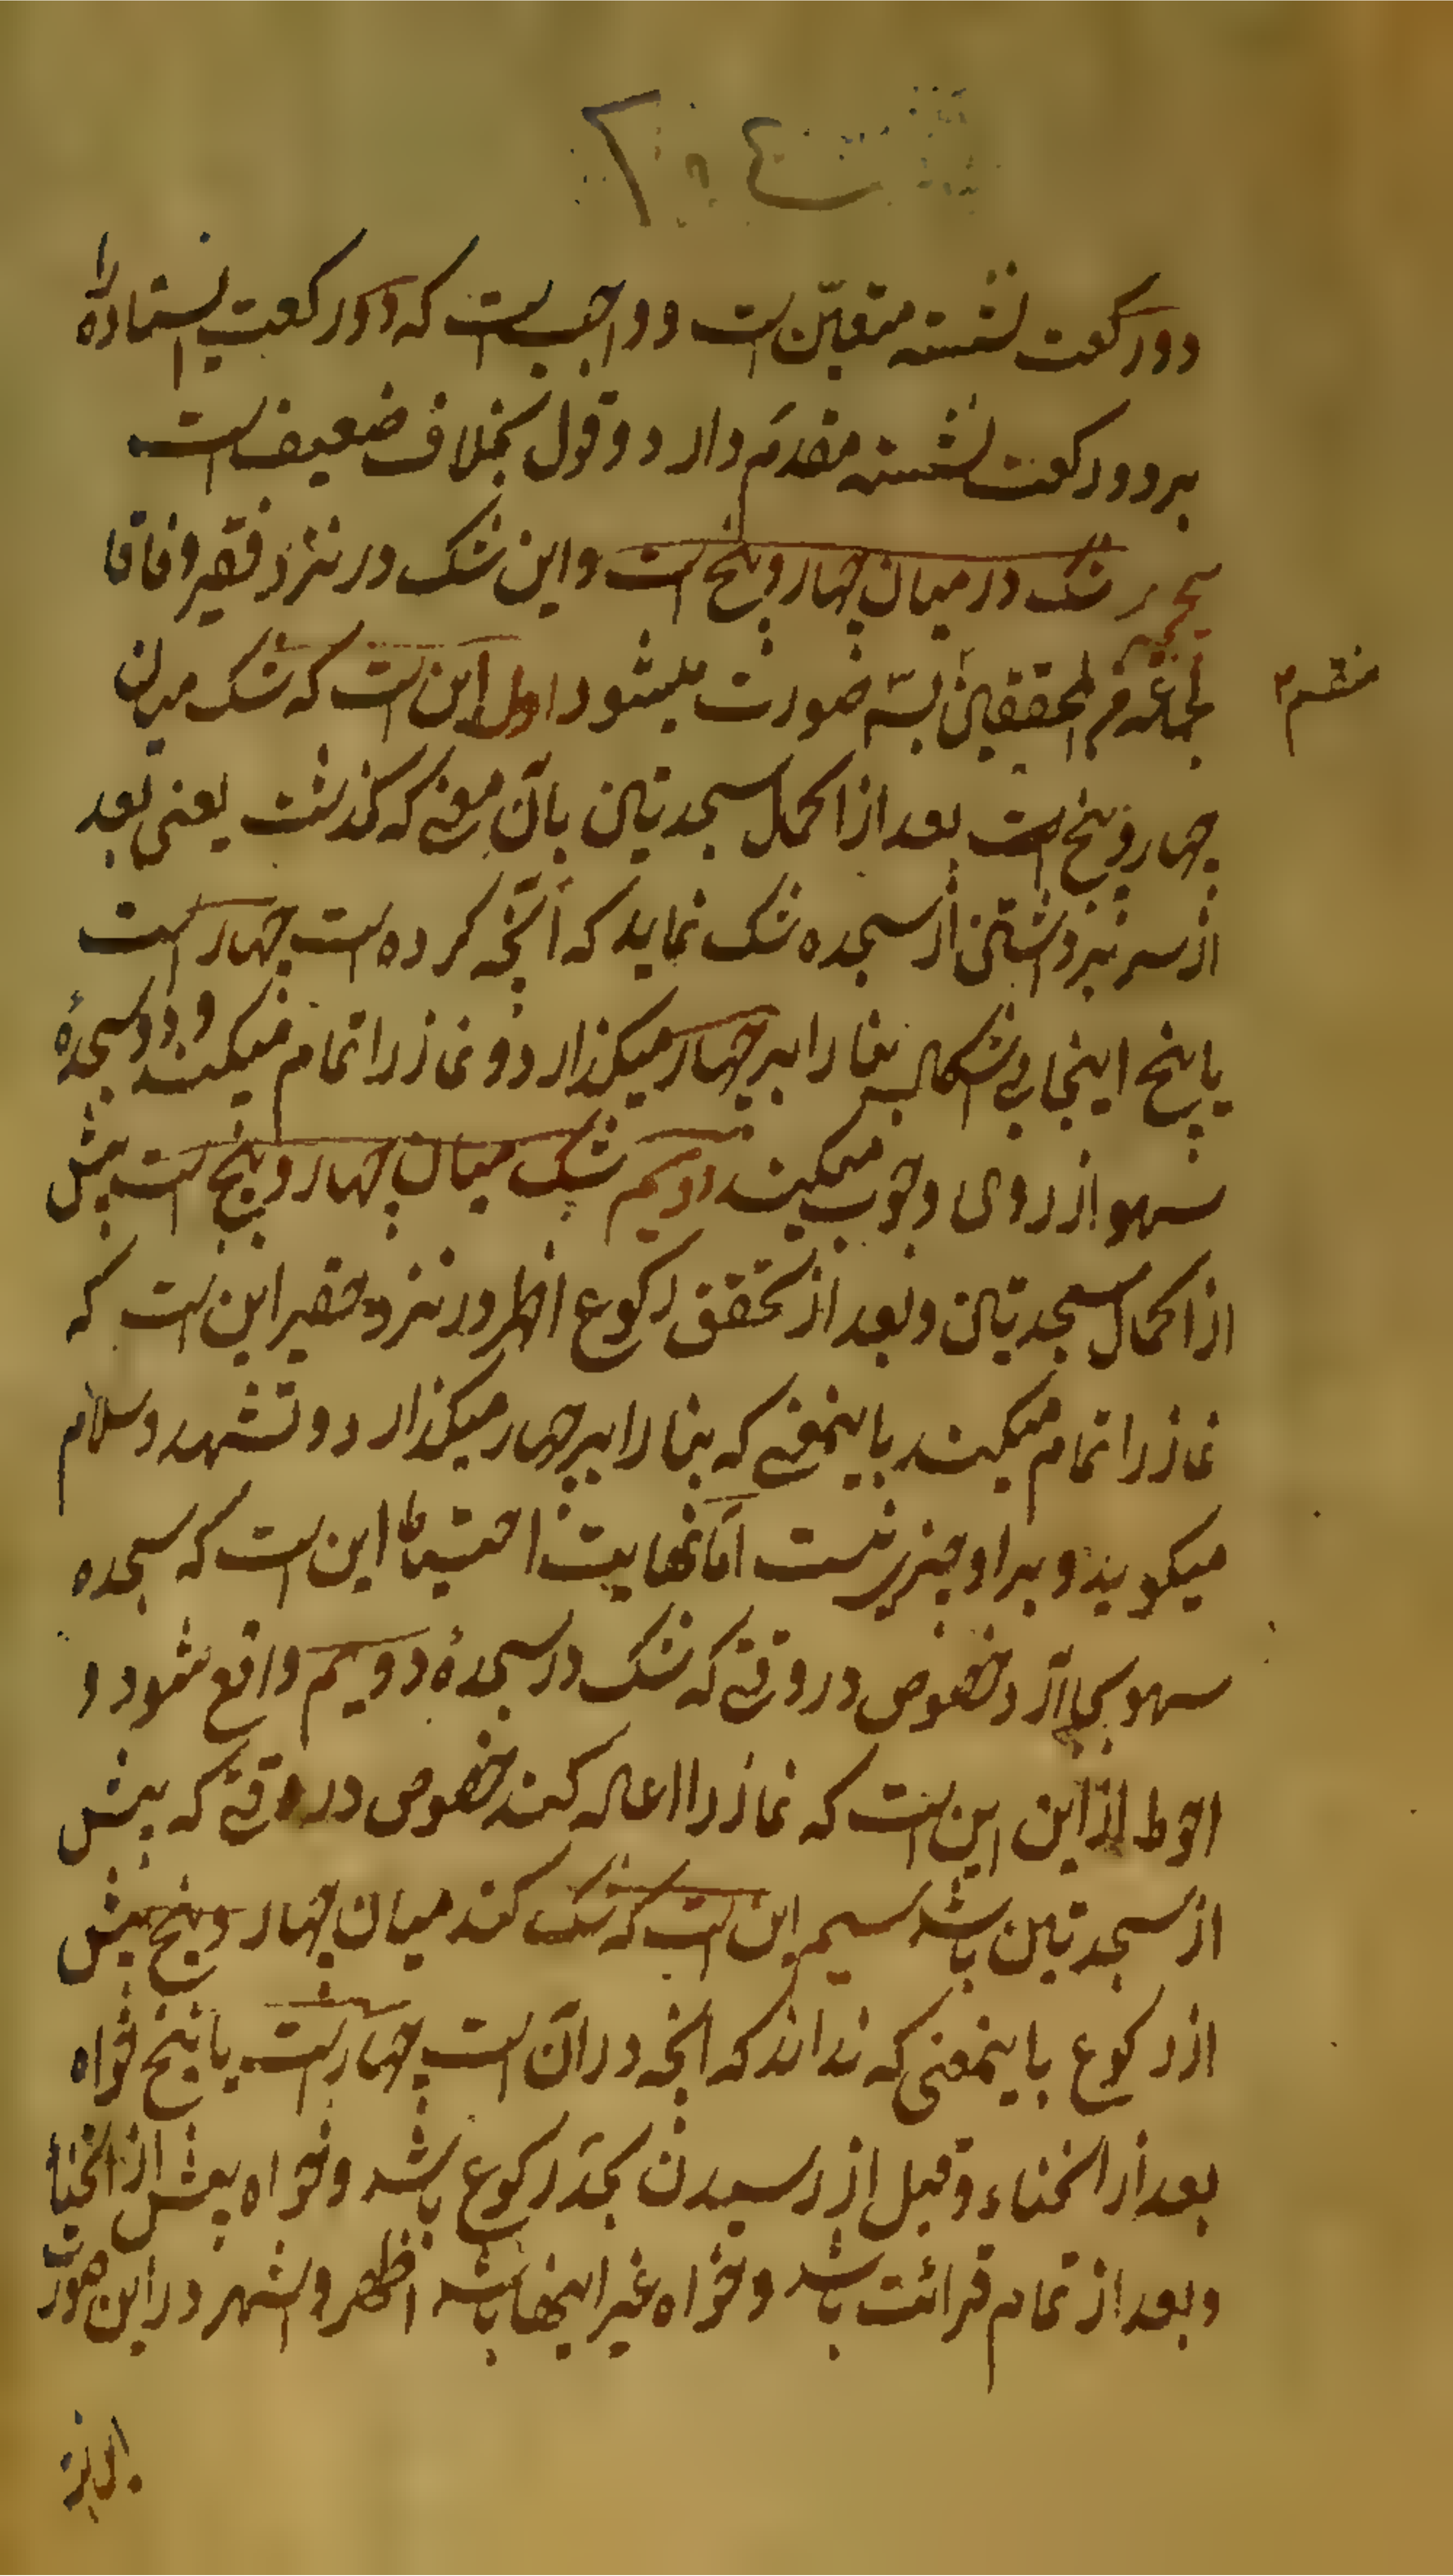 دو رکعت نشسته متعیّن است و واجب است که دو رکعت ایستاده را
بر دو رکعت نشسته مقدّم دارد و قول بخلاف ضعیف است
شک در میان چهار و پنج است و این شک در نزد فقیر وفاقا
لجماعة من المحققین بسه صورت میشود اول این است که شک میان
منقسم
چهار و پنج است بعد از اکمال سجدتین بآن معنی که گذشت یعنی بعد
از سر برداشتن از سجده شک نماید که آنچه کرده است چهار است
یا پنج اینجا بی اشکال بنا را بر چهار میگذارد و نماز را تمام میکند و دو سجدهٔ
سهو از روی وجوب میکند دویم شک میان چهار و پنج است پیش
از اکمال سجدتین و بعد از تحقق رکوع اظهر در نزد حقیر این است که
نماز را تمام میکند باینمعنی که بنا را بر چهار میگذارد و تشهد و سلام
میکوید و بر او چیزی نیست امّا نهایت احتیاط این است که سجده
سهو بجا آرد خصوص در وقتی که شک در سجدهٔ دویم واقع شود و
احوط از این این است که نماز را اعاده کند خصوص در وقتی که پیش
از سجدتین باشد سیم این است که شک کند میان چهار و پنج پیش
از رکوع باینمعنی که نداند که آنچه در آن است چهار است یا پنج خواه
بعد از انحناء و قبل از رسیدن بحدّ رکوع باشد و خواه پیش از انحنا
و بعد از تمام قرائت باشد و خواه غیر اینها باشد اظهر و اشهر در این صورت